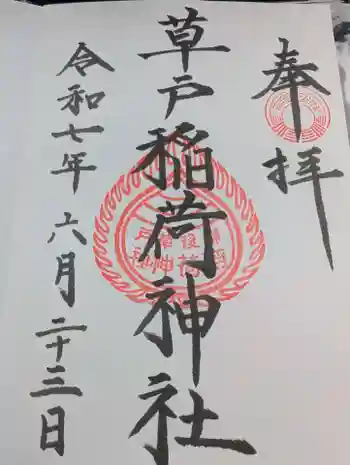 奉拝
草戸稲荷神社
令和七年六月二十三日